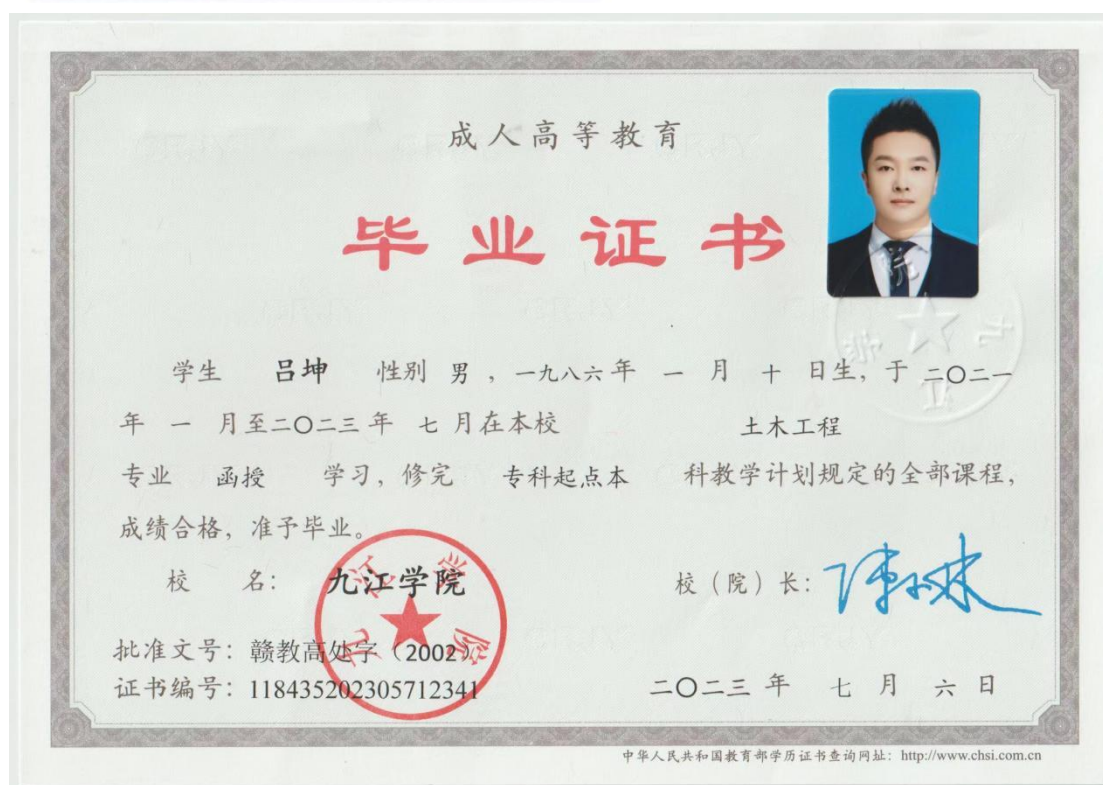 成人高等教育
毕业证书
学生 吕坤 性别 男 ，一九八六年 一 月 十 日生，于 二〇二一
年 一 月至二〇二三 年 七 月在本校 土木工程
专业 函授 学习，修完 专科起点本 科教学计划规定的全部课程，
成绩合格，准予毕业。
校 名： 九江学院 校（院）长：
九江学院
批准文号：赣教高处字（2002）
证书编号：118435202305712341 二〇二三 年 七 月 六 日
中华人民共和国教育部学历证书查询网址：http://www.chsi.com.cn